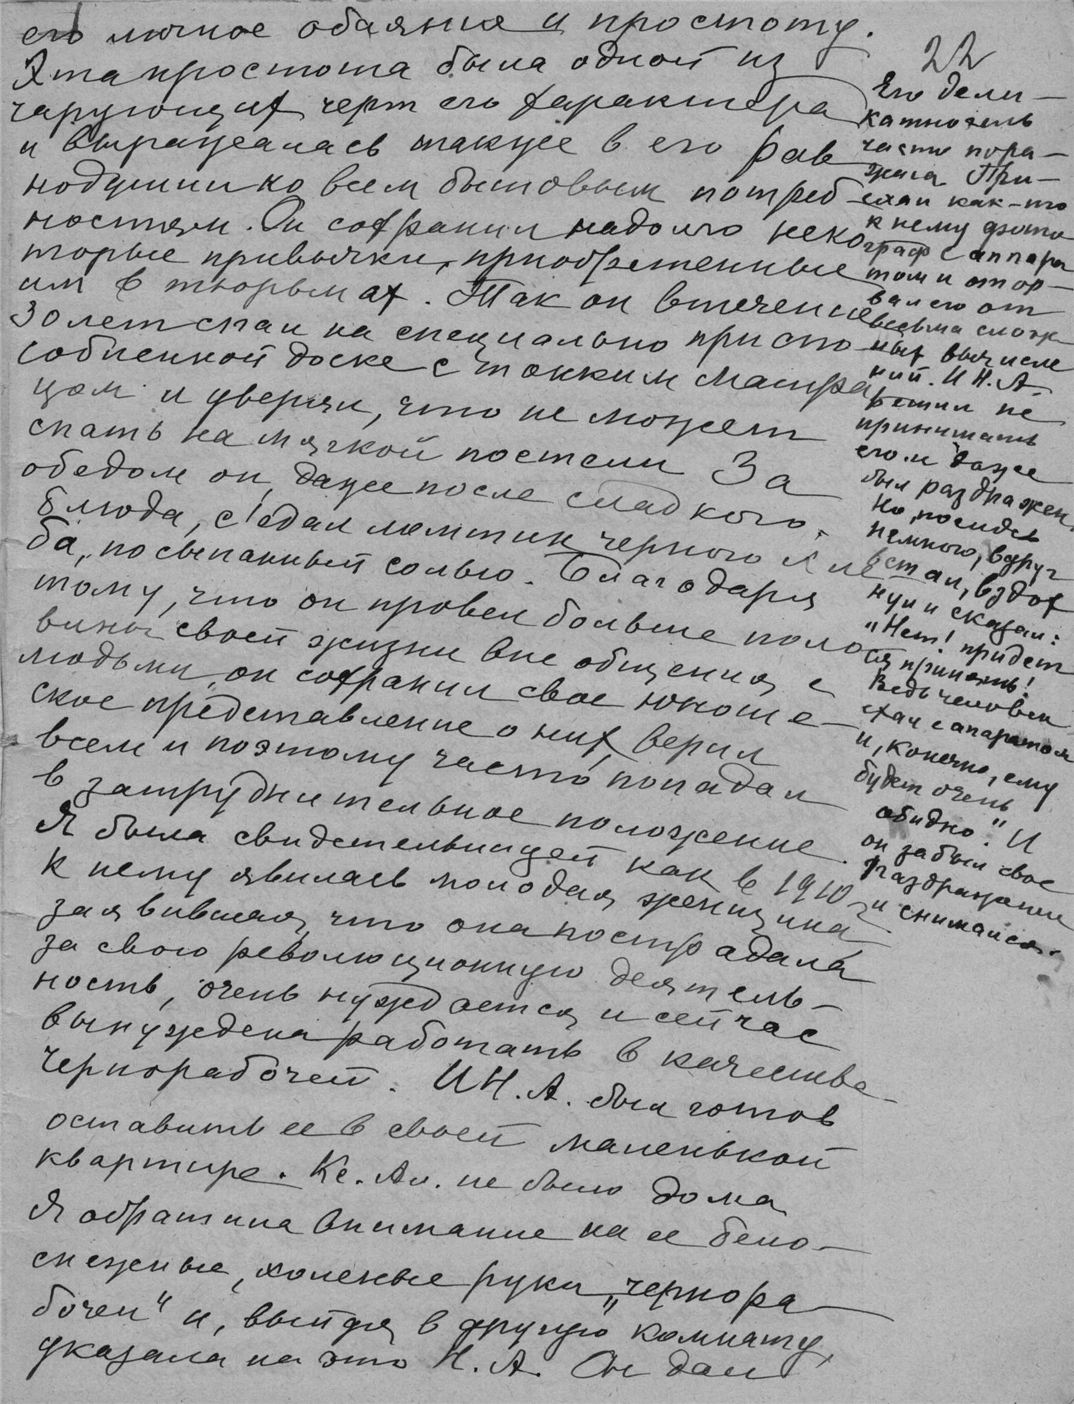 его личное обаяние и простоту.
Эта простота была одной из
чарующих черт его характера
и выражалась также в его рав
нодушии ко всем бытовым потреб-
ностям. Он сохранил надолго неко
торые привычки, приобретенные
им в тюрьмах. Так он в течение
30 лет спал на специально приспо-
собленной доске с тонким матра
цом и уверял, что не может
спать на мягкой постели За
обедом он, даже после сладкого
блюда, с'едал ломтик черного хле
ба, посыпанный солью. Благодаря
тому, что он провел больше поло
вины своей жизни вне общения с
людьми, он сохранил свое юноше-
ское представление о них, верил
всем и поэтому часто попадал
в затруднительное положение.
Я была свидетельницей как в 1910 г.
к нему явилась молодая женщина,
заявившая, что она пострадала
за свою революционную деятель-
ность, очень нуждается и сейчас
вынуждена работать в качестве
чернорабочей. Н.А. был готов
оставить ее в своей маленькой
квартире. Кс. Ал. не было дома
Я обратила внимание на ее бело-
снежные, холеные руки „чернора
бочей" и, выйдя в другую комнату,
указала на это Н.А. Он дал
22
Его дели-
катность
часто пора-
жала При-
ехал как-то
к нему фото
граф с аппара
том и отор-
вал его от
весьма слож-
ных вычисле
ний. Н.А.
решил не
принимать
его и даже
был раздражен.
Но, посидев
немного, вдруг
встал, вздох
нул и сказал:
"Нет! придет
ся принять!
Ведь человек
ехал с апаратом
и, конечно, ему
будет очень
обидно." И
он забыл свое
раздражение
и снимался.